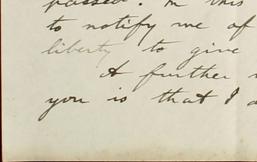 passed. In this
to notify me of
liberty to give
A further
you is that I